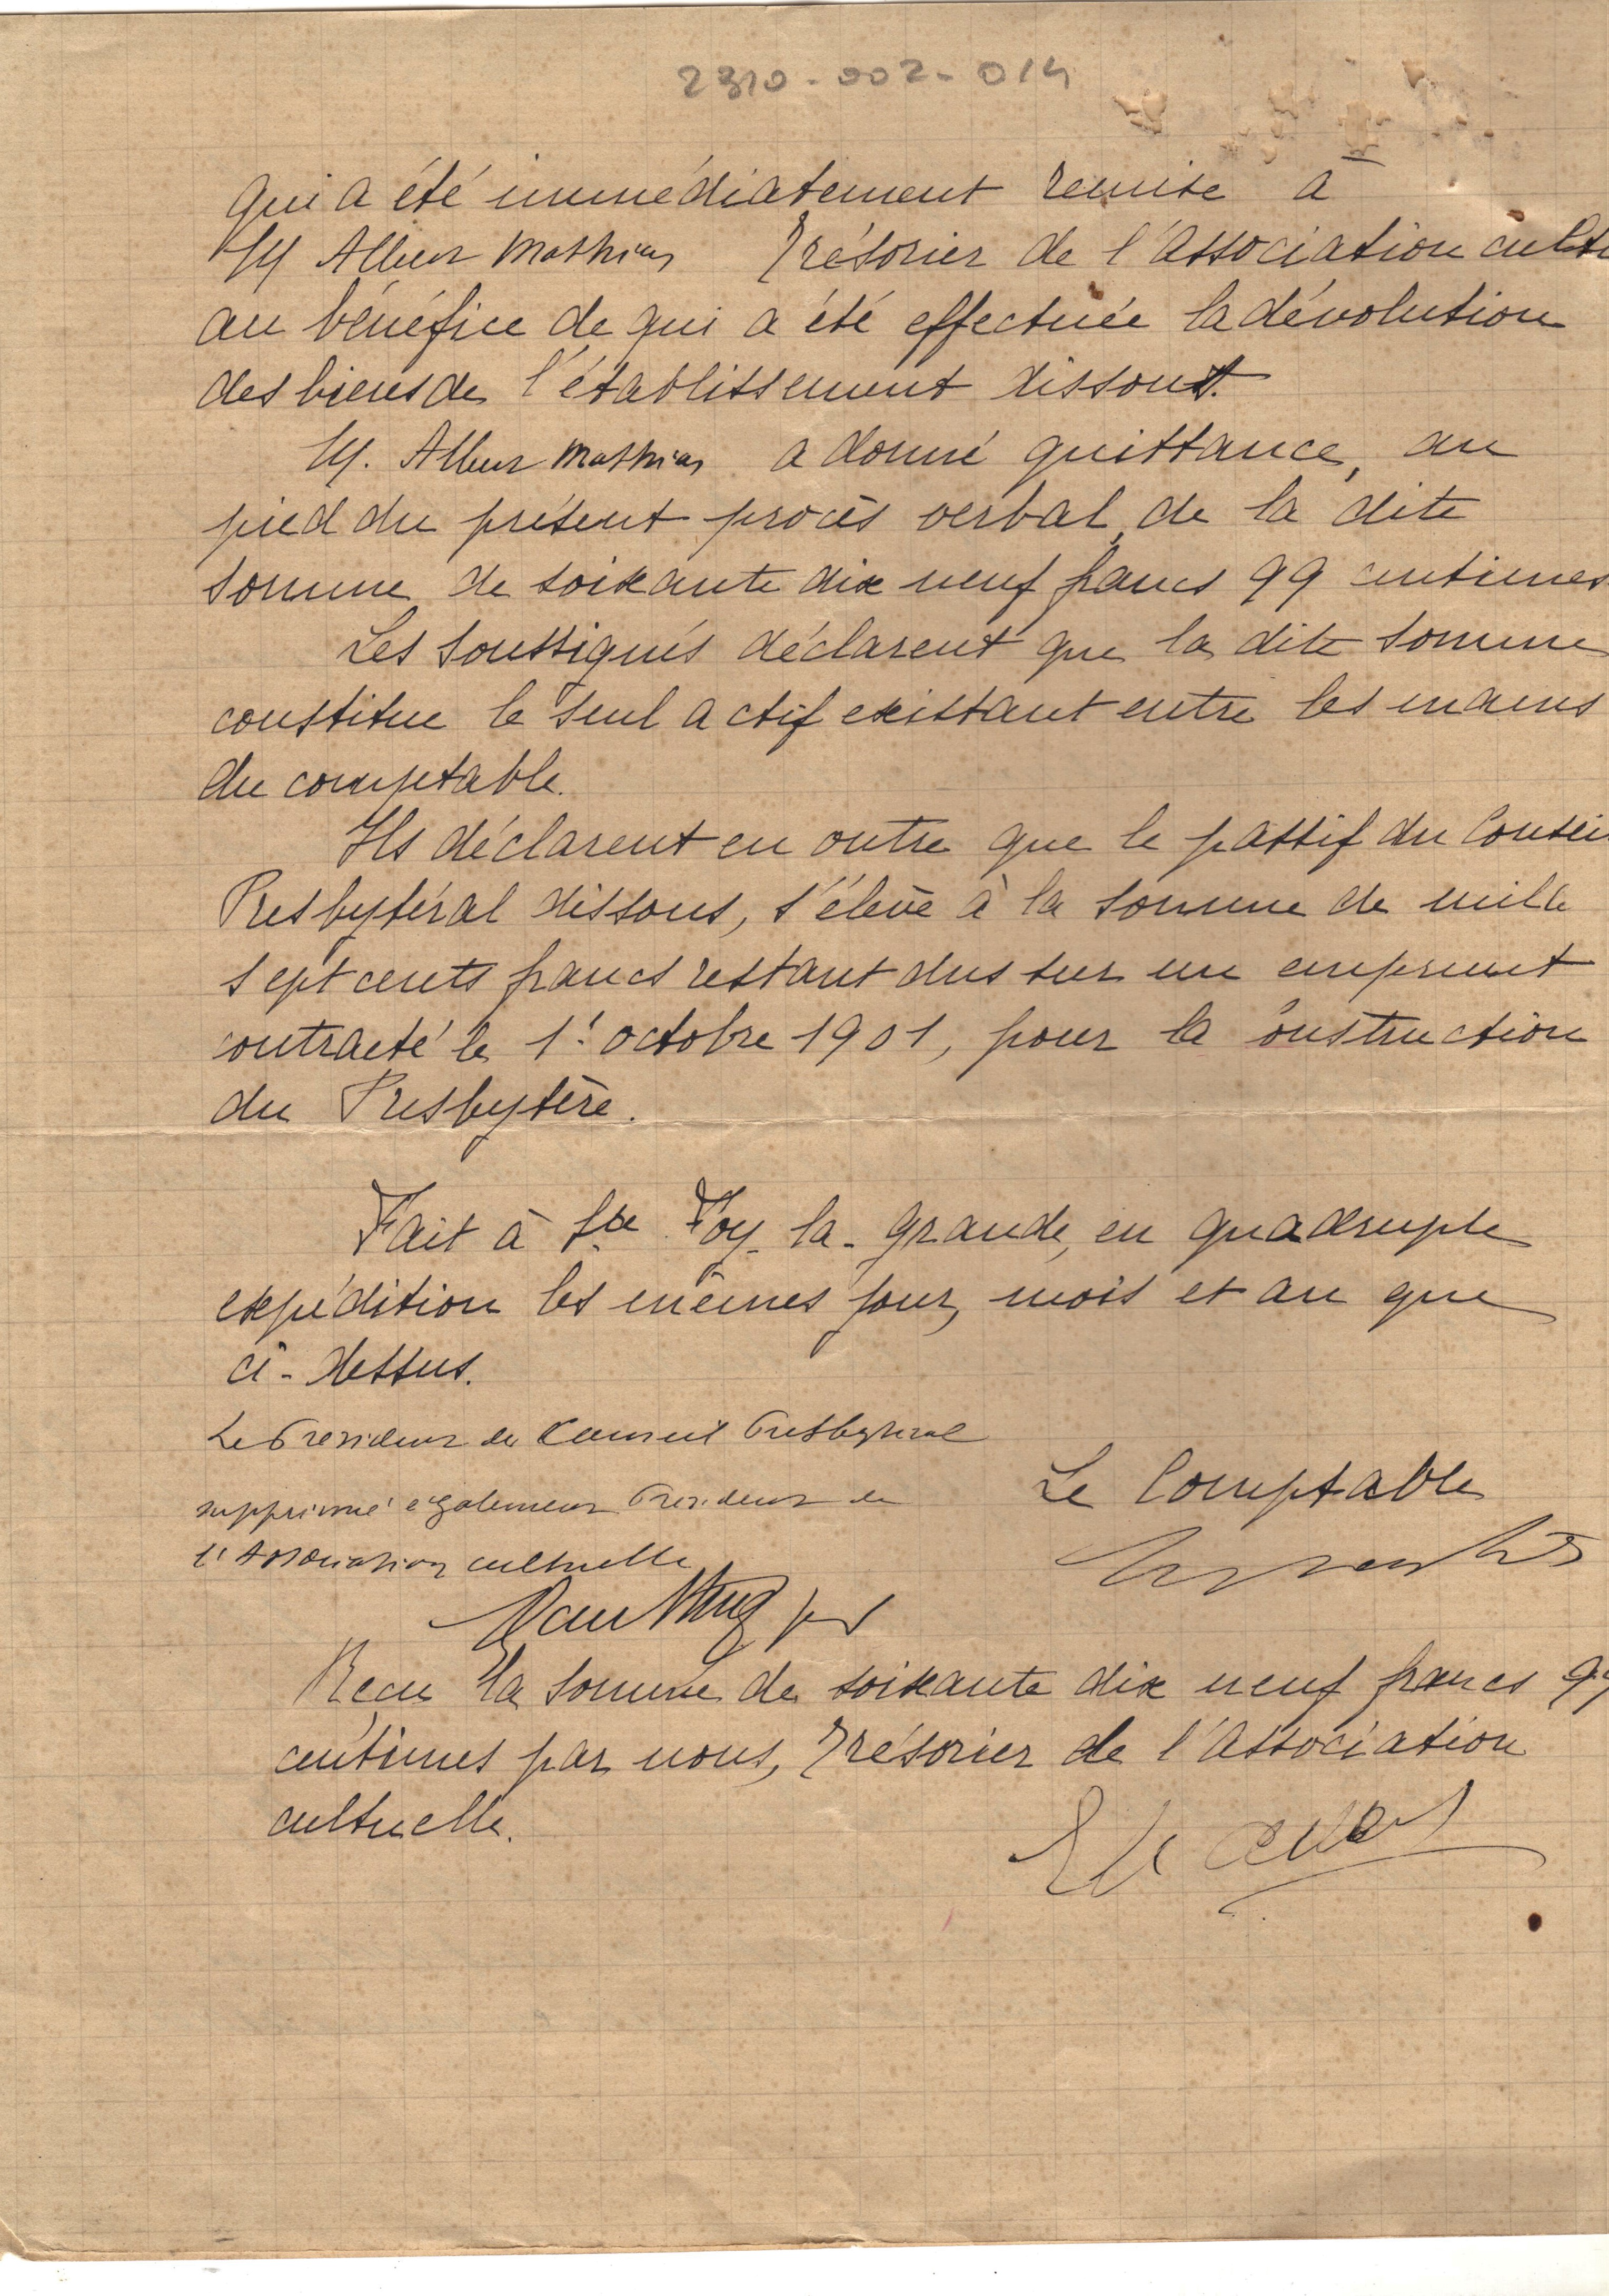 2310-002-014
qui a été immédiatement remise à
M Albert Mathias Trésorier de l'Association cultu
au bénéfice de qui a été effectuée la dévolution
des biens de l'établissement dissout.
M. Albert Mathias a donné quittance, au
pied du présent procès verbal, de la dite
somme de soixante dix neuf francs 99 centimes
Les soussignés déclarent que la dite somme
constitue le seul actif existant entre les mains
du comptable.
Ils déclarent en outre que le passif du Consei
Presbytéral dissous, s'élève à la somme de mille
sept cents francs restant dus sur un emprunt
contracté le 1er octobre 1901, pour la construction
du Presbytère.
Fait à Ste Foy-la-Grande, en quadruple
expédition les mêmes jour, mois et an que
ci-dessus.
Le President du Conseil Presbyteral
supprimé également President de
l'Association cultuelle
Le Comptable
Reçu la somme de soixante dix neuf francs 99
centimes par nous, Trésorier de l'Association
cultuelle.